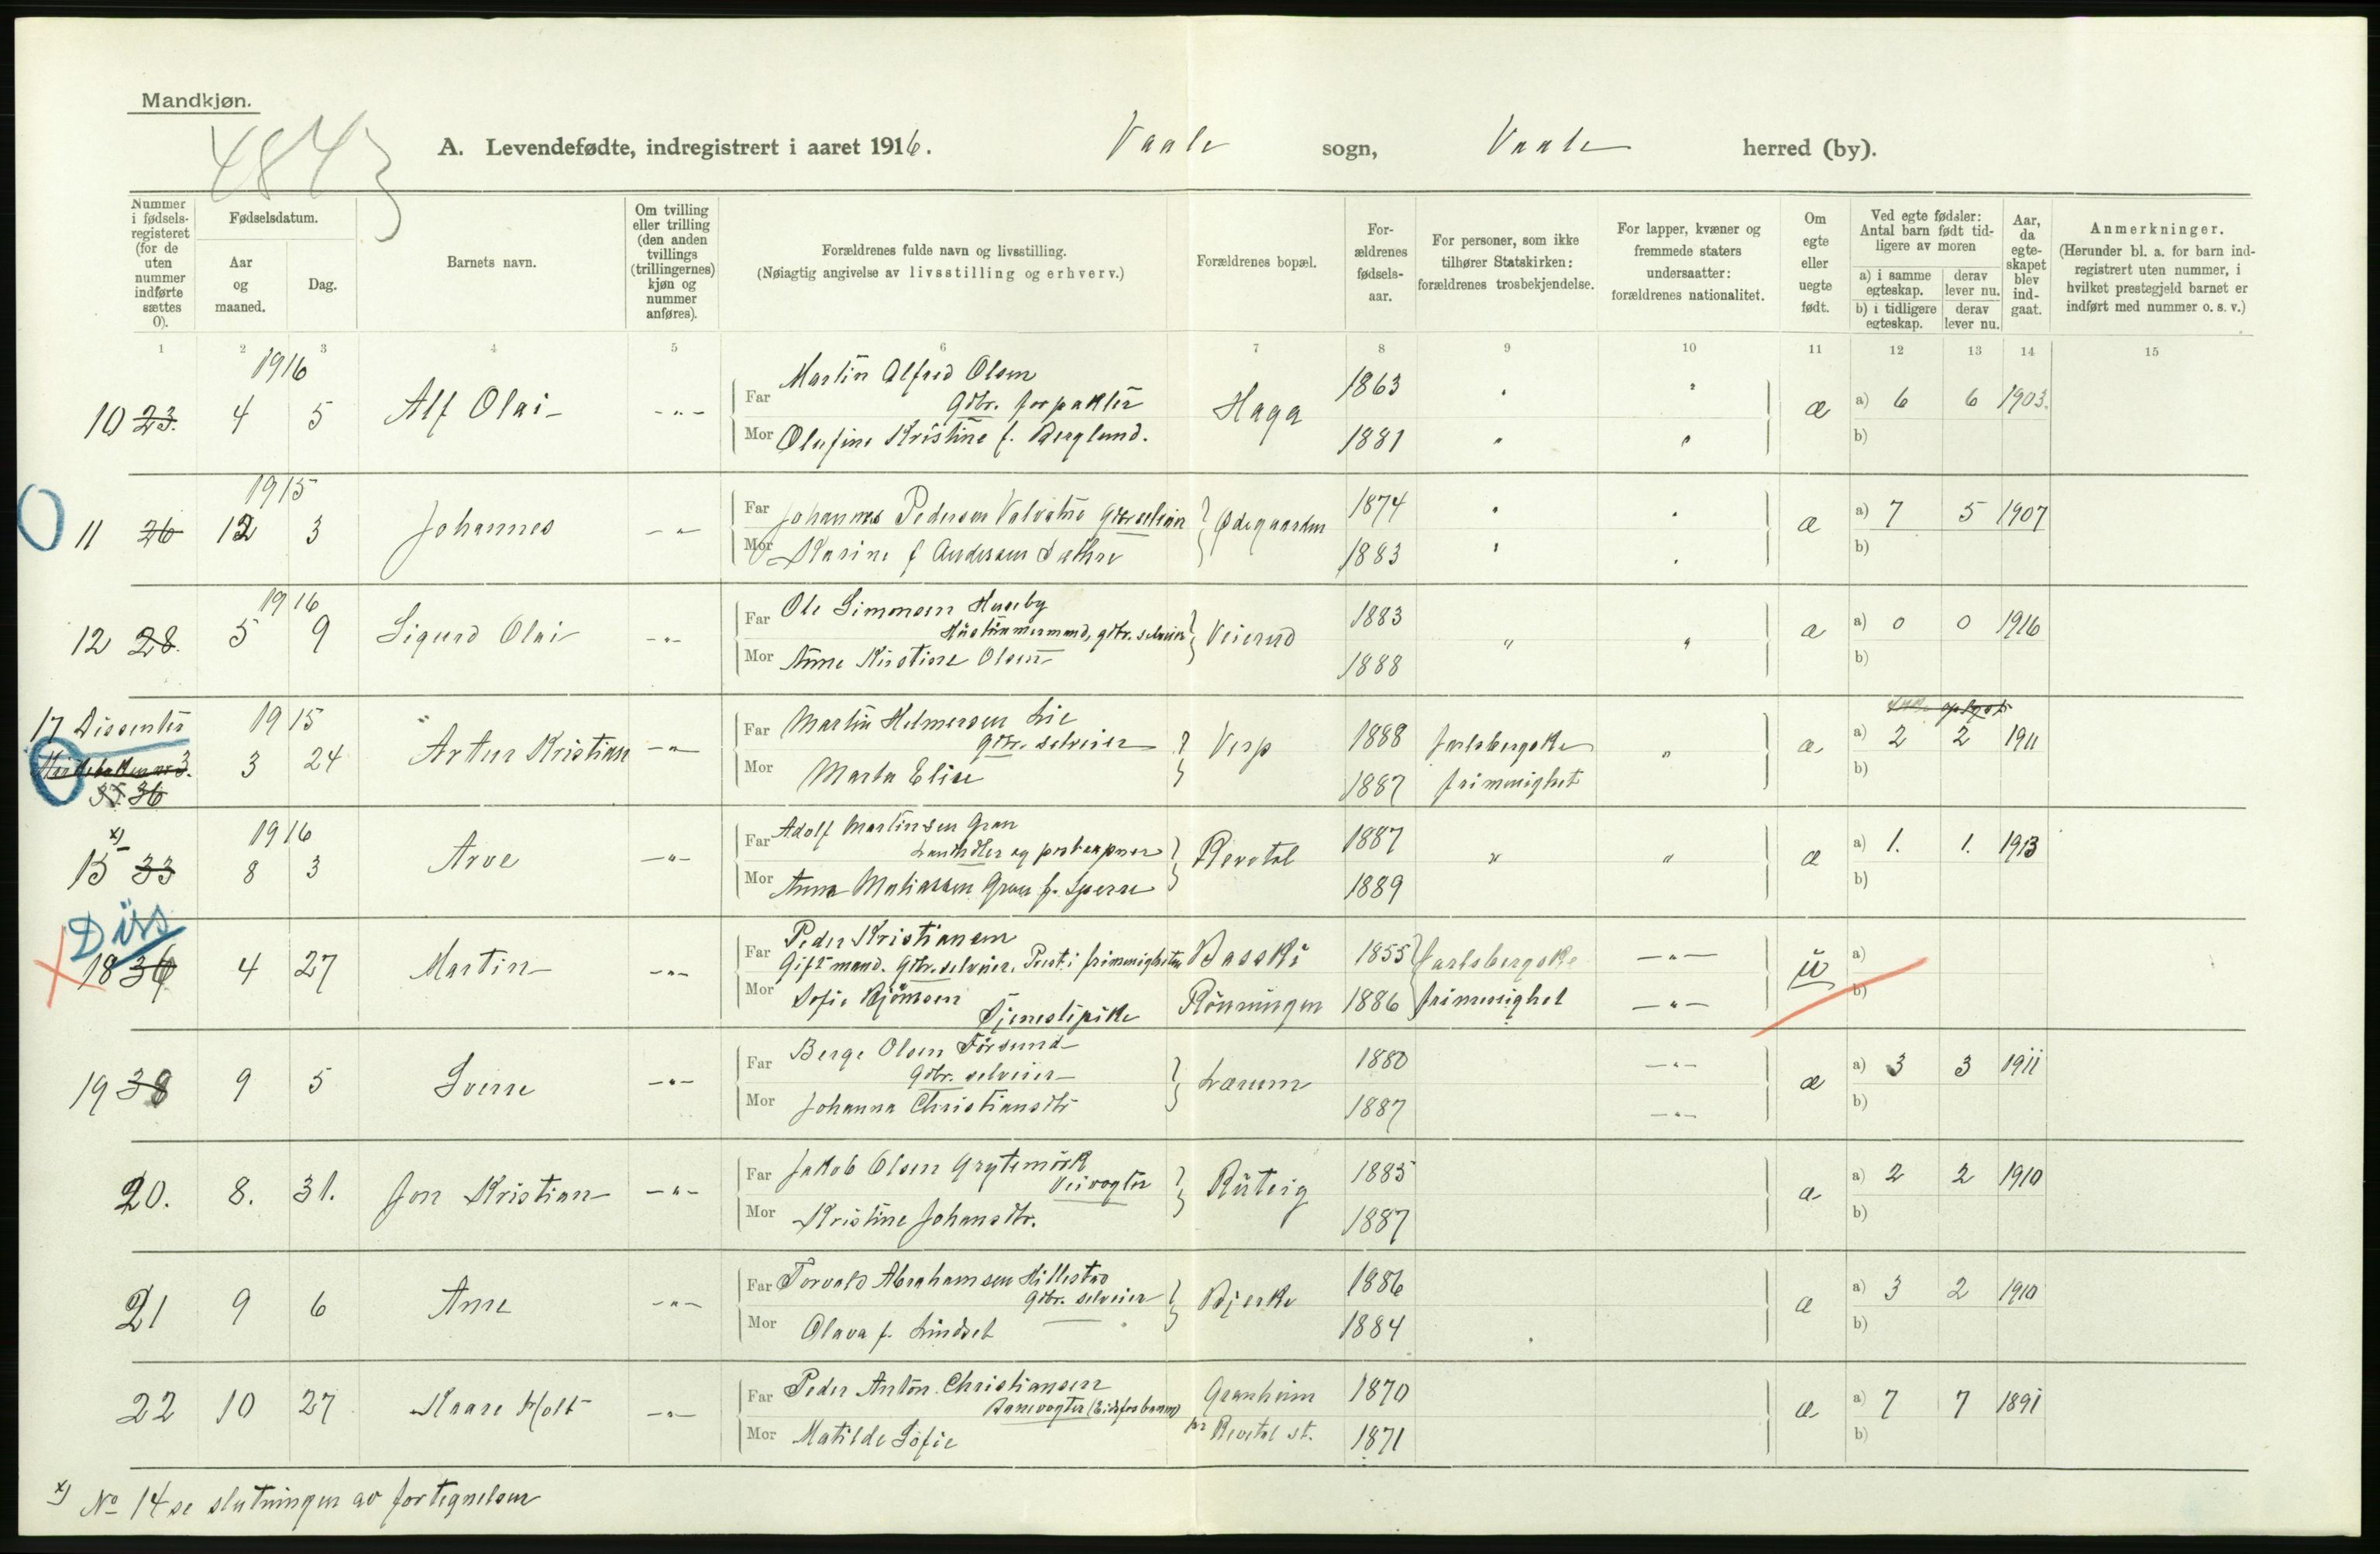 Mandkjøn.
4843
A. Levendefødte, indregistrert i aaret 1916. Vaale sogn, Vaale herred (by).
Nummer i fødsels-registeret (for de uten nummer indførte sættes 0).
Fødselsdatum.
Aar og maaned.
Dag.
Barnets navn.
Om tvilling eller trilling (den anden tvillings (trillingernes) kjøn og nummer anføres).
Forældrenes fulde navn og livsstilling.
(Nøiagtig angivelse av livsstilling og erhverv.)
Forældrenes bopæl.
For-ældrenes fødsels-aar.
For personer, som ikke tilhører Statskirken: forældrenes trosbekjendelse.
For lapper, kvæner og fremmede staters undersaatter: forældrenes nationalitet.
Om egte eller uegte født.
Ved egte fødsler: Antal barn født tid-ligere av moren
a) i samme egteskap.
derav lever nu.
b) i tidligere egteskap.
derav lever nu.
Aar, da egte-skapet blev ind-gaat.
Anmerkninger.
(Herunder bl. a. for barn ind-registrert uten nummer, i hvilket prestegjeld barnet er indført med nummer o. s. v.)
1 2 3 4 5 6 7 8 9 10 11 12 13 14 15
1916
10 23. 4 5 Alf Olai -"-
Far Martin Alfred Olsen
Gbr. forpakter
Mor Olufine Kristine f. Berglund.
Haga 1863 1881 æ a) 6 6 1903.
b)
1915
11 26 12 3 Johannes -"-
Far Johannes Pedersen Valvatne Gbr selveier
Mor Karine f Andersen Sæthre
Ødegaarden 1874 1883 æ a) 7 5 1907
b)
1916
12 28. 5 9 Sigurd Olai -"-
Far Ole Simonsen Huseby
Hustømmermand, gbr. selveier
Mor Anne Kirstine Olsen
Veierud 1883 1888 " " æ a) 0 0 1916
b)
17 Dissenter 1915
3 24 Artur Kristian -"-
36
Far Martin Helmersen Lie
Gbr. selveier
Mor Marta Elise
Verp 1888 1887 Jarlsbergske frimenighet " æ a) 2 2 1911
b)
x) 1916
15 33 8 3 Arve -"-
Far Adolf Martinsen Gran
Landhdler og postaapner
Mor Anna Matiassen Gran f. Sperre
Revetal 1887 1889 " " æ a) 1. 1. 1913
b)
Diss
18 36 4 27 Martin -"-
Far Peder Kristiansen
Gift mand. Gbr. selveier. Prest i frimenigheten
Mor Sofie Bjørnsen
Tjenestepike
Basski 1855 Jarlsbergske -"-
Rønningen 1886 frimenighet -"-
u a)
b)
19 38 9 5 Sverre -"-
Far Berge Olsen Førsund
Gbr. selveier
Mor Johanna Christiansdtr
Lærum 1880 1887 -"- -"- æ a) 3 3 1911
b)
20. 8. 31. Jon Kristian -"-
Far Jakob Olsen Grytemørk
Veivogter
Mor Kristine Johansdtr.
Ruteig 1885 1887 æ a) 2 2 1910
b)
21 9 6 Arne -"-
Far Torvald Abrahamsen Hillestad
Gbr. selveier
Mor Olava f. Lindset
Bjerke 1886 1884 æ a) 3 2 1910
b)
22 10 27 Kaare Holt -"-
Far Peder Anton Christiansen
Banevogter (Eidsfosbanen)
Mor Matilde Sofie
Granheim pr Revetal st. 1870 1871 æ a) 7 7 1891
b)
x) No 14 se slutningen av fortegnelsen